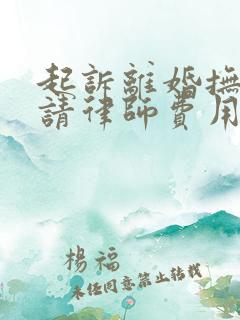 起訴離婚撫
請律師費用
楊福
未經同意禁止轉載